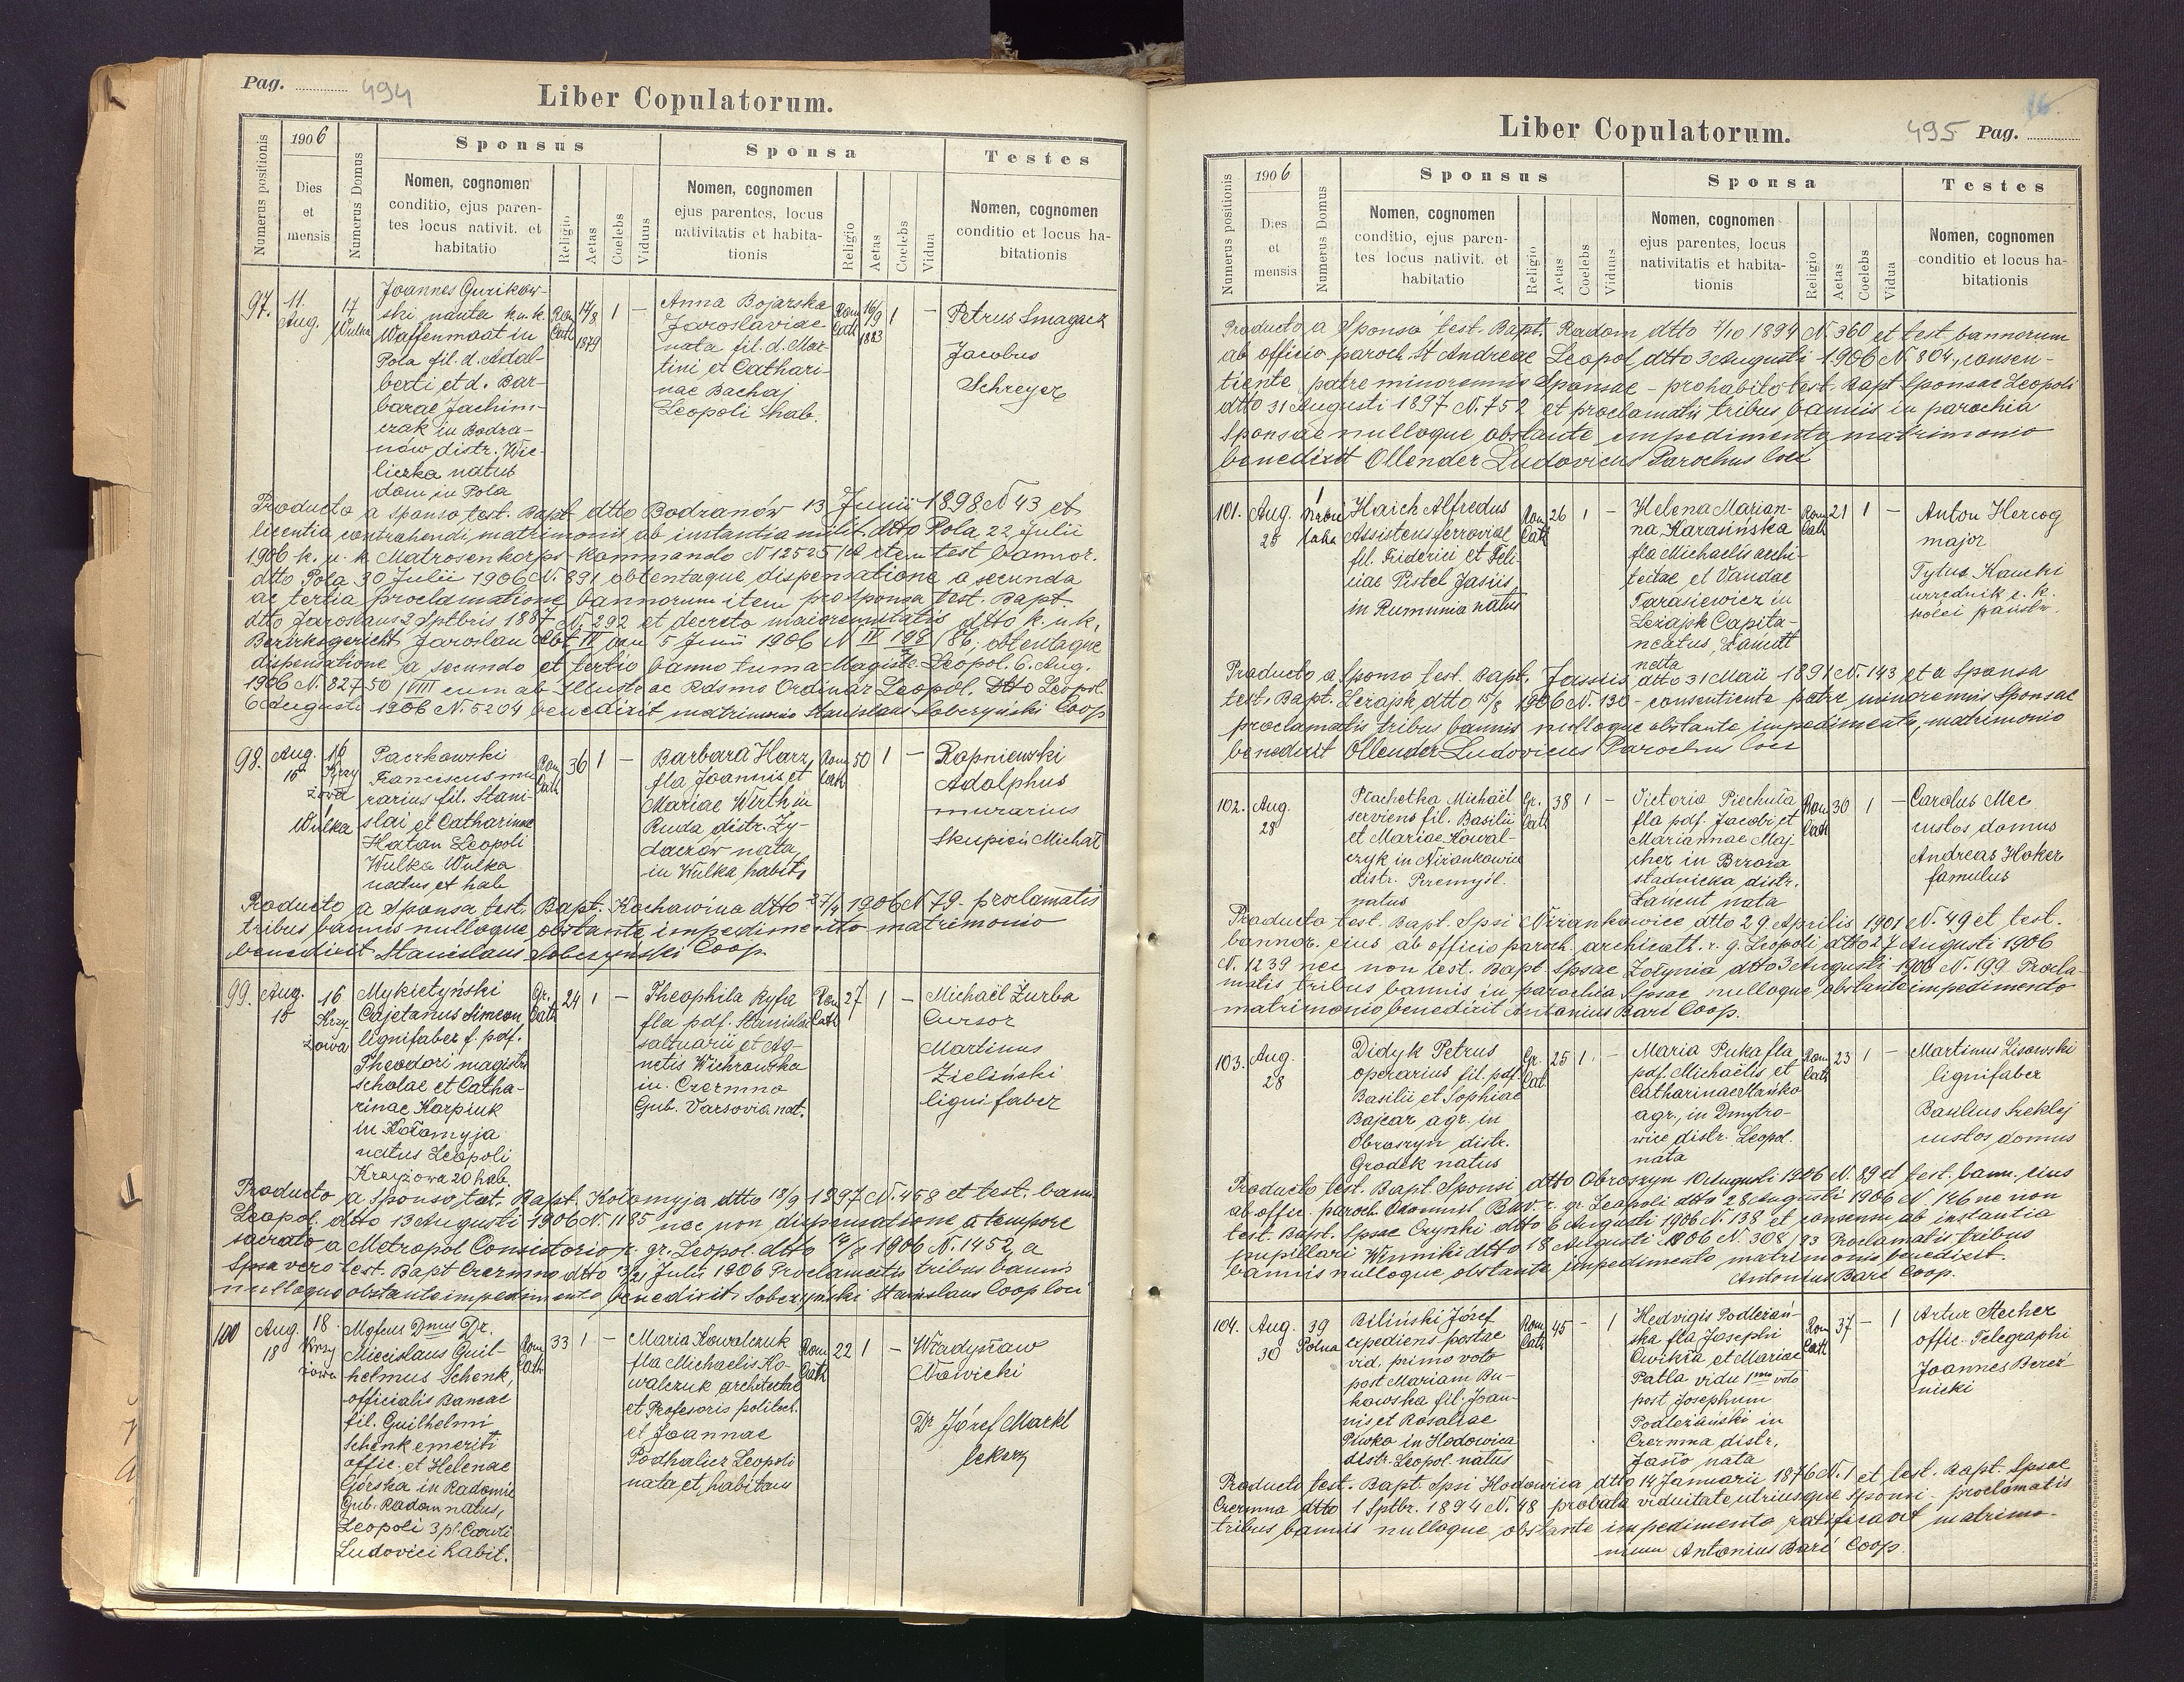 Pag. 494
Liber Copulatorum.
Numerus positionis
1906
Dies
et
mensis
Numerus Domus
Sponsus
Nomen, cognomen
conditio, ejus paren-
tes locus nativit. et
habitatio
Religio
Aetas
Coelebs
Viduus
Sponsa
Nomen, cognomen
ejus parentes, locus
nativitatis et habita-
tionis
Religio
Aetas
Coelebs
Vidua
Testes
Nomen, cognomen
conditio et locus ha-
bitationis
97.
11.
Aug.
17
Wulka
Joannes Gurikow-
ski nauta k.u.k.
Waffenmaat in
Pola fil. d. Adal-
berti et d. Bar-
barae Jachim-
czak in Bodza-
nów distr. Wie-
liczka natus
dom in Pola
Rom
Cath
17/8
1879
1
–
Anna Bojarska
Jaroslaviae
nata fil. d. Mar-
tini et Cathari-
nae Bachaj
Leopoli hab.
Rom
Cath
16/9
1883
1
–
Petrus Smagacz
Jacobus
Schreyer
Producto a Sponso test. Bapt. dtto Bodzanów 13 Junii 1898 N 43 et
licentia contrahendi matrimonii ab instantia milit. dtto Pola 22 Julii
1906 k. u. k. Matrosenkorps-Kommando N 12525 item test bannor.
dtto Pola 30 Julii 1906 N. 891 obtentaque dispensatione a secunda
ac tertia proclamatione bannorum item pro Sponsa test. Bapt.
dtto Jaroslau 2 Sptbris 1887 N. 292 et decreto maiorennitatis dtto k. u. k.
Bezirksgericht Jaroslau Abt IV 5 Junii 1906 N II 198/86, obtentaque
dispensatione a secundo et tertio banno tum a Magistr. Leopol. 6. Aug.
1906 N. 82750/VIII cum ab Illustr ac Rdsmo Ordinar Leopol. dtto Leopol.
6 Augusti 1906 N. 5204 benedixit matrimonio Stanislaus Soberzyński Coop
98.
Aug.
15
16
Krzy
żowa
Wulka
Paczkowski
Franciscus mu-
rarius fil. Stani-
slai et Catharinae
Hatan Leopoli
Wulka Wulka
natus et hab
Rom
Cath
36
1
–
Barbara Harz
fla Joannis et
Mariae Wirth in
Ruda distr. Ży-
daczów nata,
in Wulka habit,
Rom
Cath
50
1
–
Ropniewski
Adolphus
murarius
Skupień Michał
Producto a Sponsa test. Bapt. Kochawina dtto 27/4 1906 N 79 - proclamatis
tribus bannis nulloque obstante impedimento matrimonio
benedixit Stanislaus Soberzyński Coop.
99.
Aug.
15
16
Krzy
żowa
Mykietyński
Cajetanus Simeon
lignifaber f. pdf.
Theodori magistri
scholae et Catha-
rinae Karpiuk
in Kołomyja
natus Leopoli
Krzyżowa 20 hab.
Gr.
Cath
24
1
–
Theophila Ryfa
fla pdf. Stanislai
saltuarii et Ag-
netis Wichrowska
in Czermno
Gub. Varsovia nat.
Rom
Cath
27
1
–
Michaël Zurba
Cursor
Martinus
Zieliński
lignifaber
Producto a Sponso test. Bapt. Kołomyja dtto 18/9 1897 N. 458 et test. bann.
Leopol. dtto 13 Augusti 1906 N. 1185 nec non dispensatione a tempore
sacrato a Metropol Consistorio r. gr. Leopol. dtto 14/8 1906 N. 1452 a
Spsa vero test. Bapt Czermno dtto 13/21 Julii 1906 Proclamatis tribus bannis
nulloque obstante impedimento benedixit Soberzyński Stanislaus Coop loci
100
Aug.
18
18
Krzy
żowa
Mgfcus Dnus Dr.
Miecislaus Guil-
helmus Schenk,
officialis Bancae
fil. Guilhelmi
Schenk emeriti
offic. et Helenae
Górska in Radomie
Gub. Radom natus,
Leopoli 3 pl. Caroli
Ludovici habit.
Rom
Cath
33
1
–
Maria Kowalczuk
fla Michaelis Ko-
walczuk architectae
et Profesoris politech.
et Joannae
Podhalicz Leopoli
nata et habitans
Rom
Cath
22
1
–
Władysław
Nowicki
Dr Józef Markl
lekarz
Liber Copulatorum.
495 Pag.
16
Numerus positionis
1906
Dies
et
mensis
Numerus Domus
Sponsus
Nomen, cognomen
conditio, ejus paren-
tes locus nativit. et
habitatio
Religio
Aetas
Coelebs
Viduus
Sponsa
Nomen, cognomen
ejus parentes, locus
nativitatis et habita-
tionis
Religio
Aetas
Coelebs
Vidua
Testes
Nomen, cognomen
conditio et locus ha-
bitationis
Producto a Sponso test. Bapt. Radom dtto 7/10 1894 N. 360 et test bannorum
ab officio paroch. St Andreae Leopol dtto 3 Augusti 1906 N 804, consen-
tiente patre minorennis Sponsae - prohabito test. Bapt Sponsae Leopoli
dtto 31 Augusti 1897 N. 752 et proclamatis tribus bannis in parochia
Sponsae nulloque obstante impedimento matrimonio
benedixit Ollender Ludovicus Parochus loci
101.
Aug.
25
1
Haich Alfredus
Assistens ferroviae
fil. Friderici et Feli-
ciae Pistel Jasiis
in Rumunia natus
Rom
Cath
26
1
–
Helena Marian-
na Karasińska
fla Michaelis archi-
tectae et Vandae
Tarasiewicz in
Leżajsk Capita-
neatus Łańcutt
nata
Rom
Cath
21
1
–
Anton Hercog
major
Tytus Kaucki
urzędnik c. k.
kolei państw.
Producto a Sponso test. Bapt. Jassiis dtto 31 Maii 1891 N. 143 et a Sponsa
test. Bapt. Leżajsk dtto 15/8 1906 N. 130 - consentiente patre minorennis Sponsae
proclamatis tribus bannis nulloque obstante impedimento, matrimonio
benedixit Ollender Ludovicus Parochus loci
102.
Aug.
28
Płachetka Michaël
serviens fil. Basilii
et Mariae Kowal-
czyk in Niżankowice
distr. Przemyśl.
natus
Gr.
Cath
38
1
–
Victoria Piechuta
fla pdf. Jacobi et
Mariannae Maj-
cher in Brzoza
stadnicka distr.
Łańcut nata
Rom
Cath
30
1
–
Carolus Mec
custos domus
Andreas Hoker
famulus
Producto test. Bapt. Spsi Niżankowice dtto 29. Aprilis 1901 N. 49 et test.
bannor. eius ab officio paroch. archicatt. r. g. Leopoli dtto 27 Augusti 1906
N. 1239 nec non test. Bapt Spsae Żołynia dtto 3 Augusti 1906 N. 199 Procla-
matis tribus bannis in parochia Spsae nulloque obstante impedimento
matrimonio benedixit Antonius Baré Coop.
103.
Aug.
28
Didyk Petrus
operarius fil. pdf
Basilii et Sophiae
Bajcar agr. in
Obroszyn distr.
Grodek natus
Gr.
Cat.
25
1
–
Maria Puka fla
pdf. Michaëlis et
Catharinae Mańko
agr., in Dmytro-
wice distr. Leopol.
nata
Rom
Cath
23
1
–
Martinus Lisowski
lignifaber
Basilius Szeklej
custos domus
Producto test. Bapt. Sponsi dtto Obroszyn 10 Augusti 1906 N. 89 et test. bann. eius
ab offic. paroch. r. gr. Leopoli dtto 28 Augusti 1906 N 146 ne non
test. Bapt. Spsae Czyszki dtto 6 Augusti 1906 N. 138 et consensu ab instantia
pupillari Winniki dtto 18 Augusti 1906 N. 308/93 Proclamatis tribus
bannis nulloque obstante impedimento matrimonio benedixit.
Antonius Baré Coop.
104.
Aug.
30
39
Polna
Biliński Józef
expediens postae
vid. primo voto
post Mariam Bu-
kowska fil. Joan-
nis et Rosaliae
Piwko in Hodowica
distr. Leopol. natus
Rom
Cath
45
–
1
Hedvigis Podleżań-
ska fla Josephi
Ćwikła et Mariae
Patla vidu 1mo voto
post Josephum
Podleżański in
Czermna distr.
Jasło nata
Rom
Cath
37
–
1
Artur Stecher
offic. Telegraphi
Joannes Bereź-
nicki
Producto test. Bapt. Spsi Hodowica dtto 14 Januarii 1876 N. 1 et test. Bapt. Spsae
Czermna dtto 1 Sptbr. 1894 N. 48 probata viduitate utriusque Sponsi - proclamatis
tribus bannis nulloque obstante impedimento ratificavit matrimo-
nium Antonius Baré Coop.